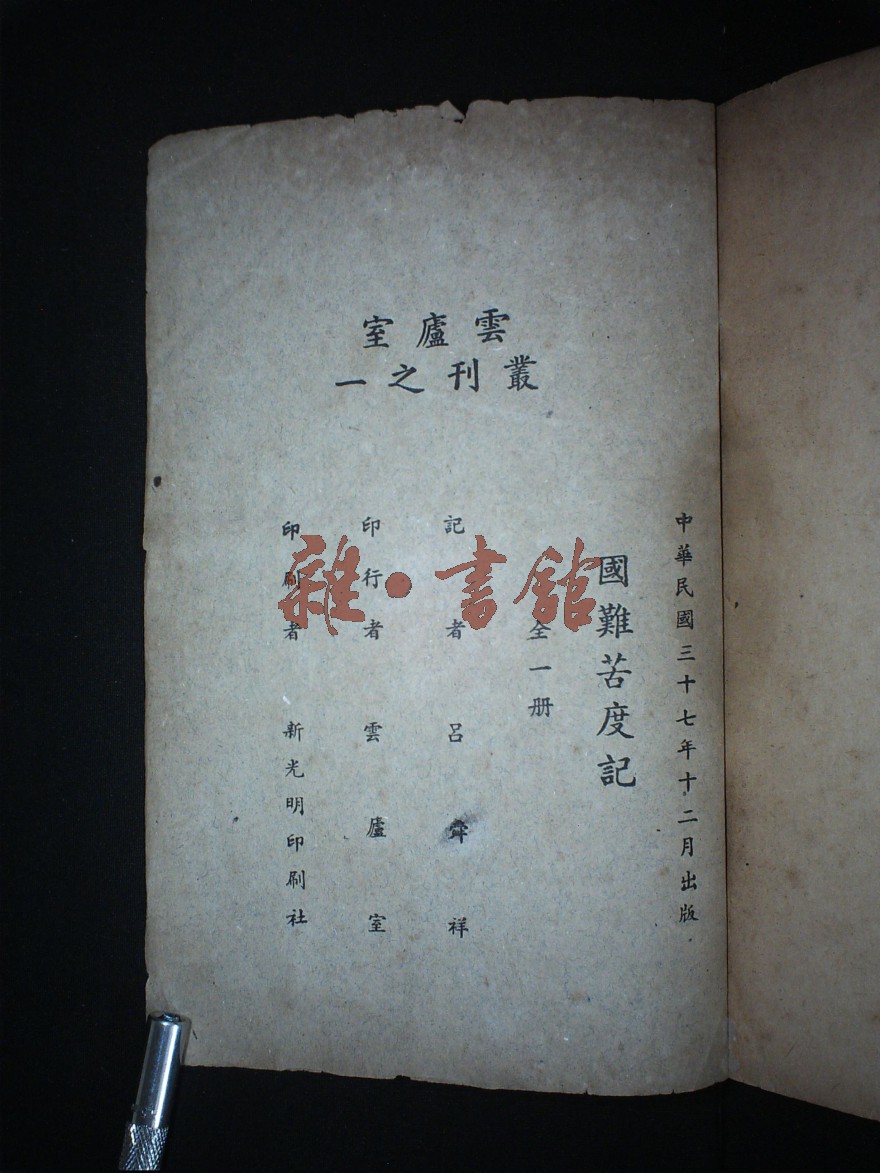 雲廬室
叢刊之一
中華民國三十七年十二月出版
國難苦度記
全一册
記者 呂舜祥
印行者 雲廬室
印刷者 新光明印刷社
雜·書館